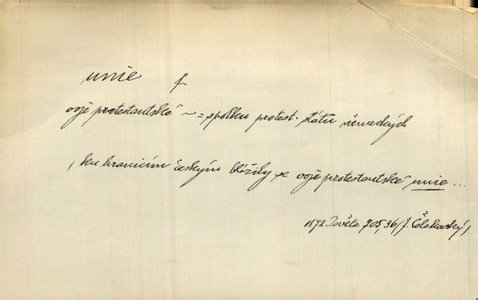 unie f
voje protestantské ~ = spolku protest. států německých
, ku hranicím českým blížily se voje protestantské unie...
1872 Osvěta 705, 36 (J. Čelakovský)